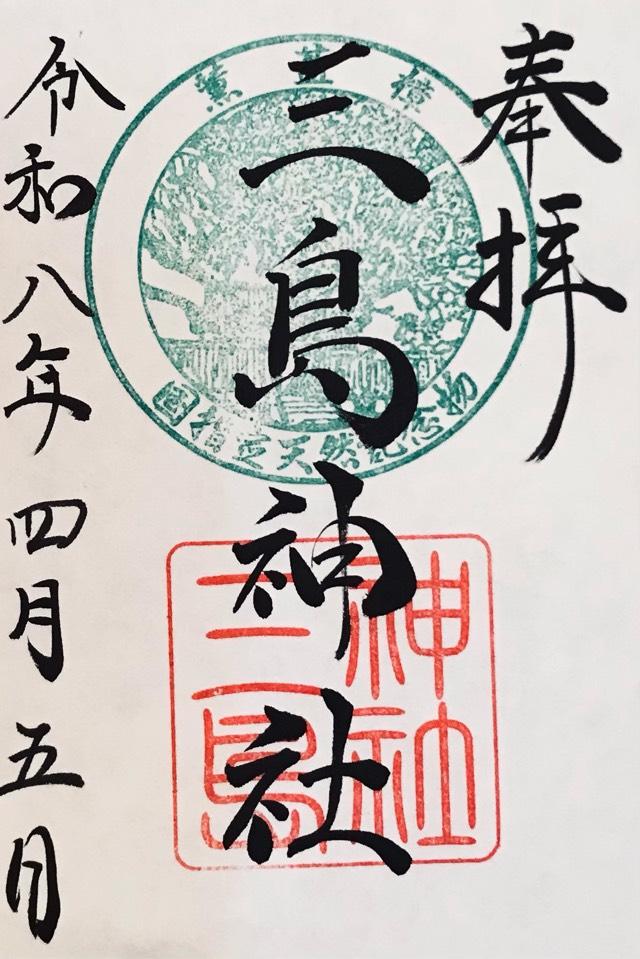 奉拝
三島神社
令和八年四月五日
薫蓋樟
國指定天然記念物
神社
三島